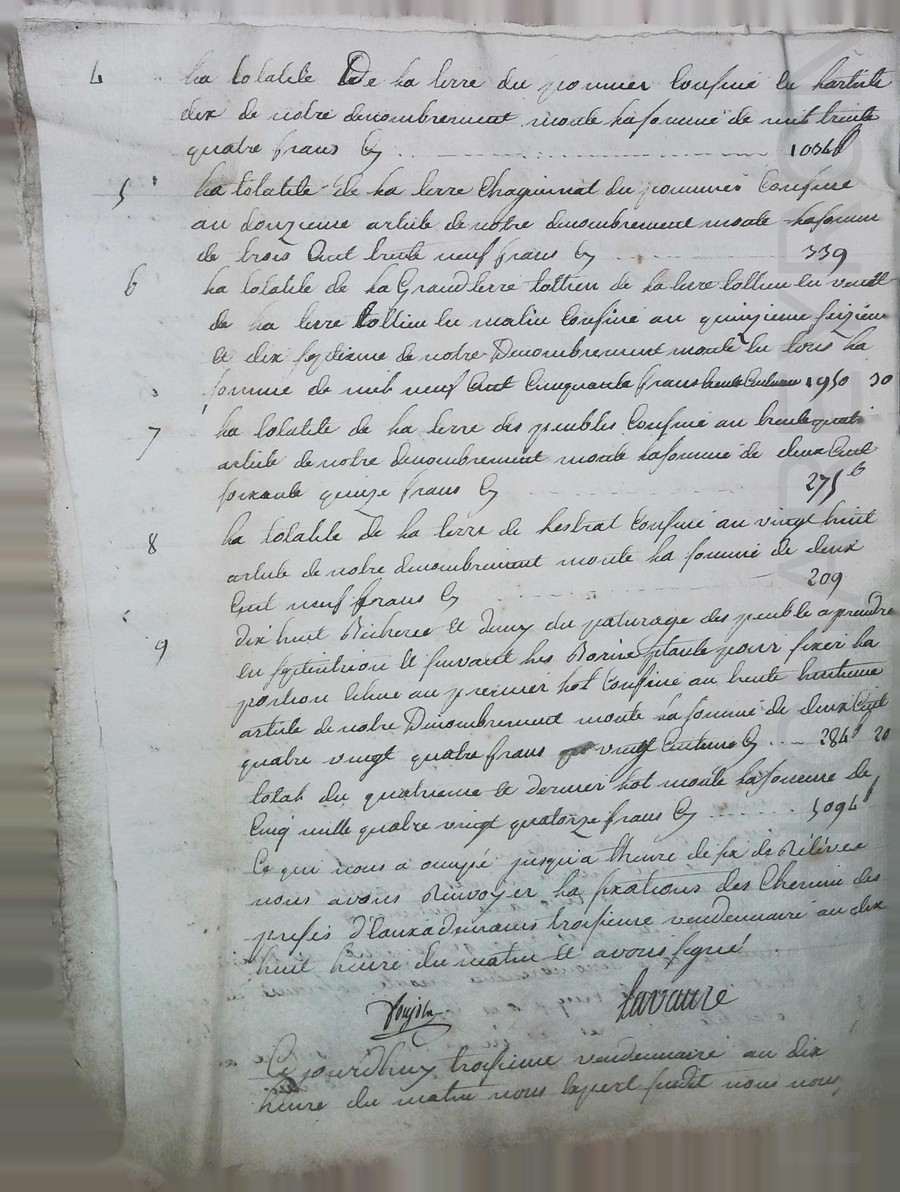 4 ha totalité De ha terre du pommier Confiné en harticle
dix de notre denombrement monte ha somme de mil trente
quatre frans Cy 1034
5 ha totalité de ha terre Chagninat du pommier Confiné
au douzieme article de notre denombrement monte ha somme
de trois Cent trente neuf frans Cy 339
6 ha totalité de ha Grand terre de ha terre en
de ha terre en matin Confiné au quinzieme seizieme
et dix septieme de notre Denombrement monte en tous ha
somme de mil neuf Cent Cinquante frans trente Centimes 1950 30
7 ha totalité de ha terre des peubles Confiné au trente quatri
article de notre denombrement monte ha somme de deux Cent
soixante quinze frans Cy 275
8 ha totalité de ha terre de hestrat Confiné au vingt huit
article de notre denombrement monte ha somme de deux
Cent neuf frans Cy 209
9 Dix huit et du paturage des peuble a prendre
en septentrion et suivant hes Borne plante pour fixer ha
portion au premier hot Confiné au trente huitieme
article de notre Denombrement monte ha somme de deux Cent
quatre vingt quatre frans vingt Centimes Cy 284 20
totah du quatrieme et dernier hot monte ha somme de
Cinq mille quatre vingt quatorze frans Cy 5094
Ce qui nous a ocupé jusqu'a theure de six de Rélévée
nous avons Renvoyer ha fixations des Chemin des
troisieme vendemiaire au dix
huit heure du matin et avons signé
Lavaure
Ce jourdhuy troisieme vendemiaire au dix
heure du matin nous Expert nous nous